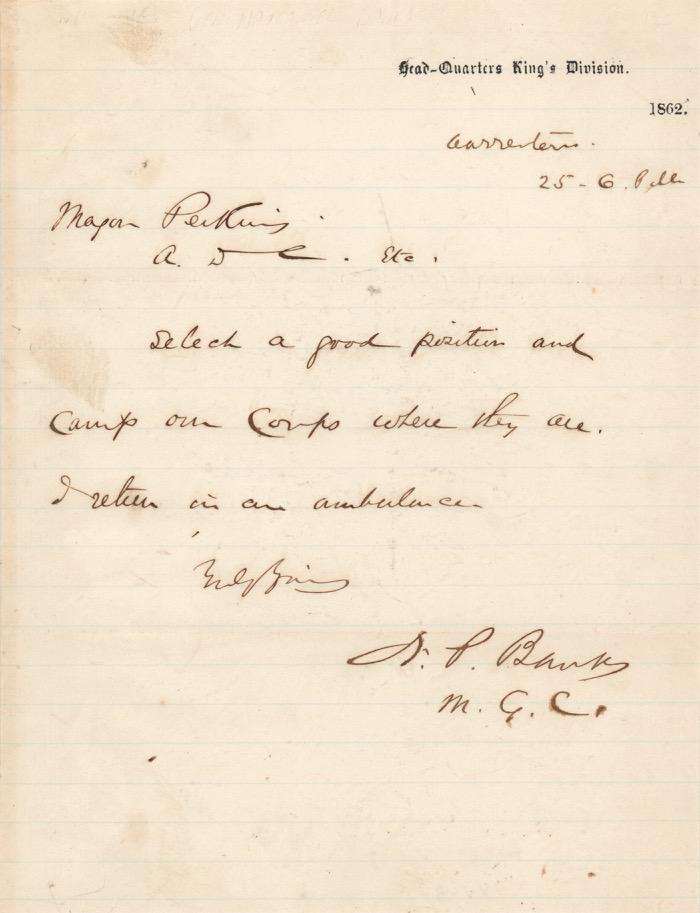 Head-Quarters King's Division.
1862.
Warrenton.
25 - 6. P.M
Major Perkins.
A. D C. Etc.
Select a good position and
Camp our Corps where they are.
I return in an ambulance
Truly Yours
N. P. Banks
M. G. C.